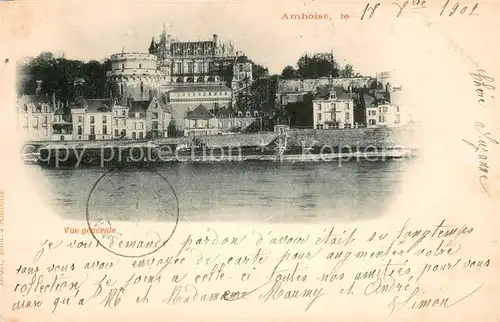 Amboise, le 18 7bre 1901
Chère Suzanne
Vue générale
je vous demande pardon d'avoir était si longtemps
sans vous avoir envoyer de carte pour augmenter votre
collection. Je joins a celle ci toutes nos amitiés, pour vous
ainsi qu'a Mr et Madame Maumy et André
Simon
copyright picture postcards